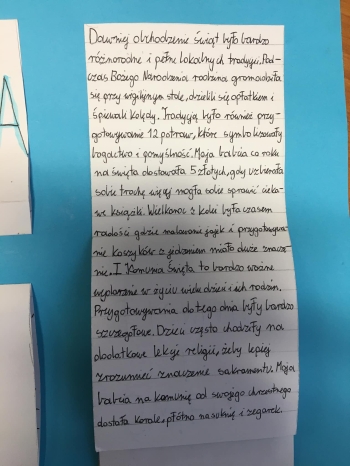 A
Dawniej obchodzenie świąt było bardzo
różnorodne i pełne lokalnych tradycji. Pod-
czas Bożego Narodzenia rodzina gromadziła
się przy wigilijnym stole, dzieliła się opłatkiem i
śpiewali kolędy. Tradycją było również przy-
gotowywanie 12 potraw, które symbolizowały
bogactwo i pomyślność. Moja babcia co roku
na święta dostawała 5 złotych, gdy uzbierała
sobie trochę więcej mogła sobie sprawić cieka-
we książki. Wielkanoc z kolei była czasem
radości gdzie malowanie jajek i przygotowywa-
nie koszyków z jedzeniem miało duże znacze-
nie. I Komunia Święta to bardzo ważne
wydarzenie w życiu wielu dzieci i ich rodzin.
Przygotowywania do tego dnia były bardzo
szczegółowe. Dzieci często chodziły na
dodatkowe lekcje religii, żeby lepiej
zrozumieć znaczenie sakramentu. Moja
babcia na komunię od swojego chrzestnego
dostała korale, płótno na suknię i zegarek.